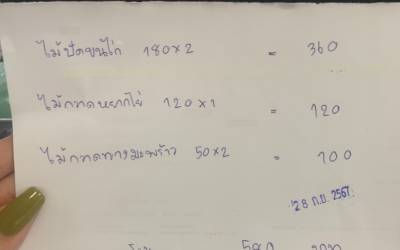 ไม้ปัดขนไก่ 180×2 = 360
ไม้กวาดหยากไย่ 120×1 = 120
ไม้กวาดทางมะพร้าว 50×2 = 100
28 ก.ย. 2567
580